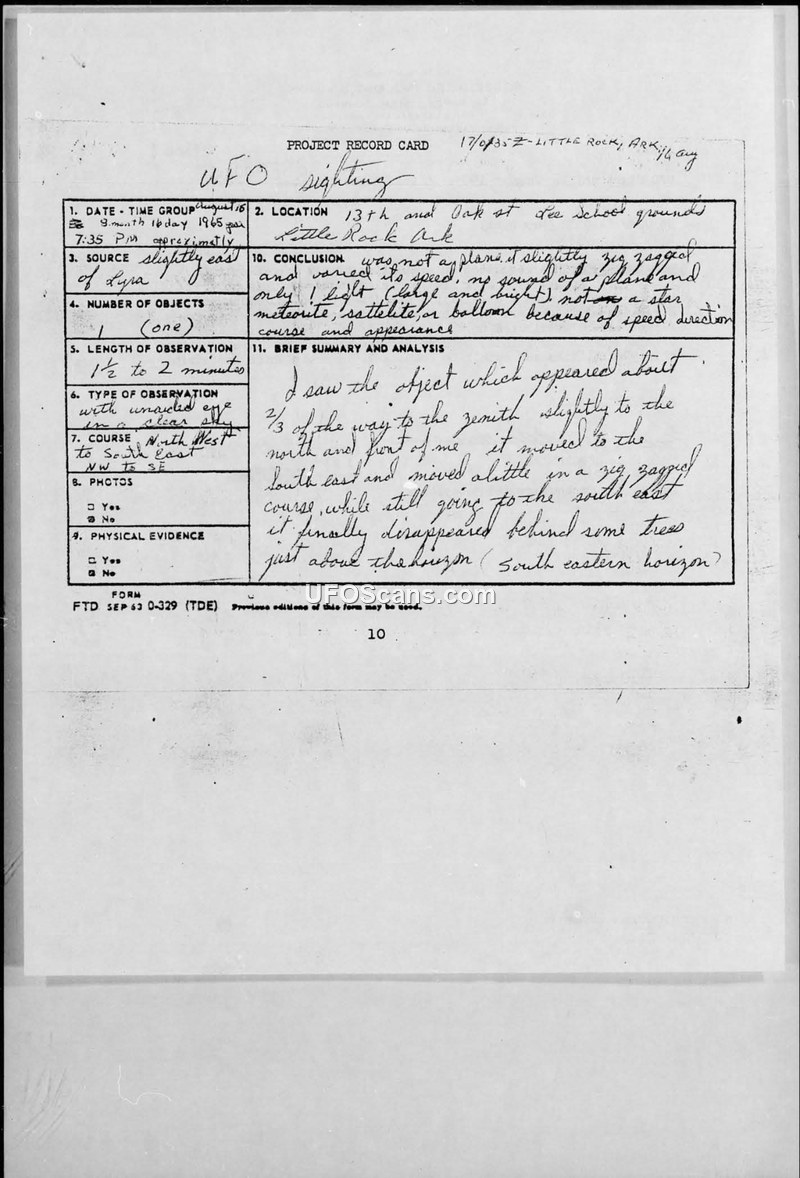 PROJECT RECORD CARD
17/0135Z-LITTLE ROCK, ARK, 16 Aug
UFO sighting
1. DATE - TIME GROUP August 16
8 month 16 day 1965 year
7:35 PM approximetly
2. LOCATION 13th and Oak st Lee School grounds
Little Rock Ark
3. SOURCE slightly east
of Lyra
4. NUMBER OF OBJECTS
1 (one)
5. LENGTH OF OBSERVATION
1½ to 2 minutes
6. TYPE OF OBSERVATION
with unaided eye
in a clear sky
7. COURSE North West
to South East
NW to SE
8. PHOTOS
Yes
No
9. PHYSICAL EVIDENCE
Yes
No
10. CONCLUSION was not a plane, it slightly zig zagged
and varied its speed, no sound of a plane and
only 1 light (large and bright), not a star
meteorite, sattelite, or balloon because of speed direction
course and appearance
11. BRIEF SUMMARY AND ANALYSIS
I saw the object which appeared about
2/3 of the way to the zenith slightly to the
north and front of me it moved to the
South east and moved a little in a zig zagged
course, while still going to the south east
it finally disappeared behind some trees
just above the horizon (South eastern horizon)
FORM
FTD SEP 63 0-329 (TDE) Previous editions of this form may be used.
UFOScans.com
10